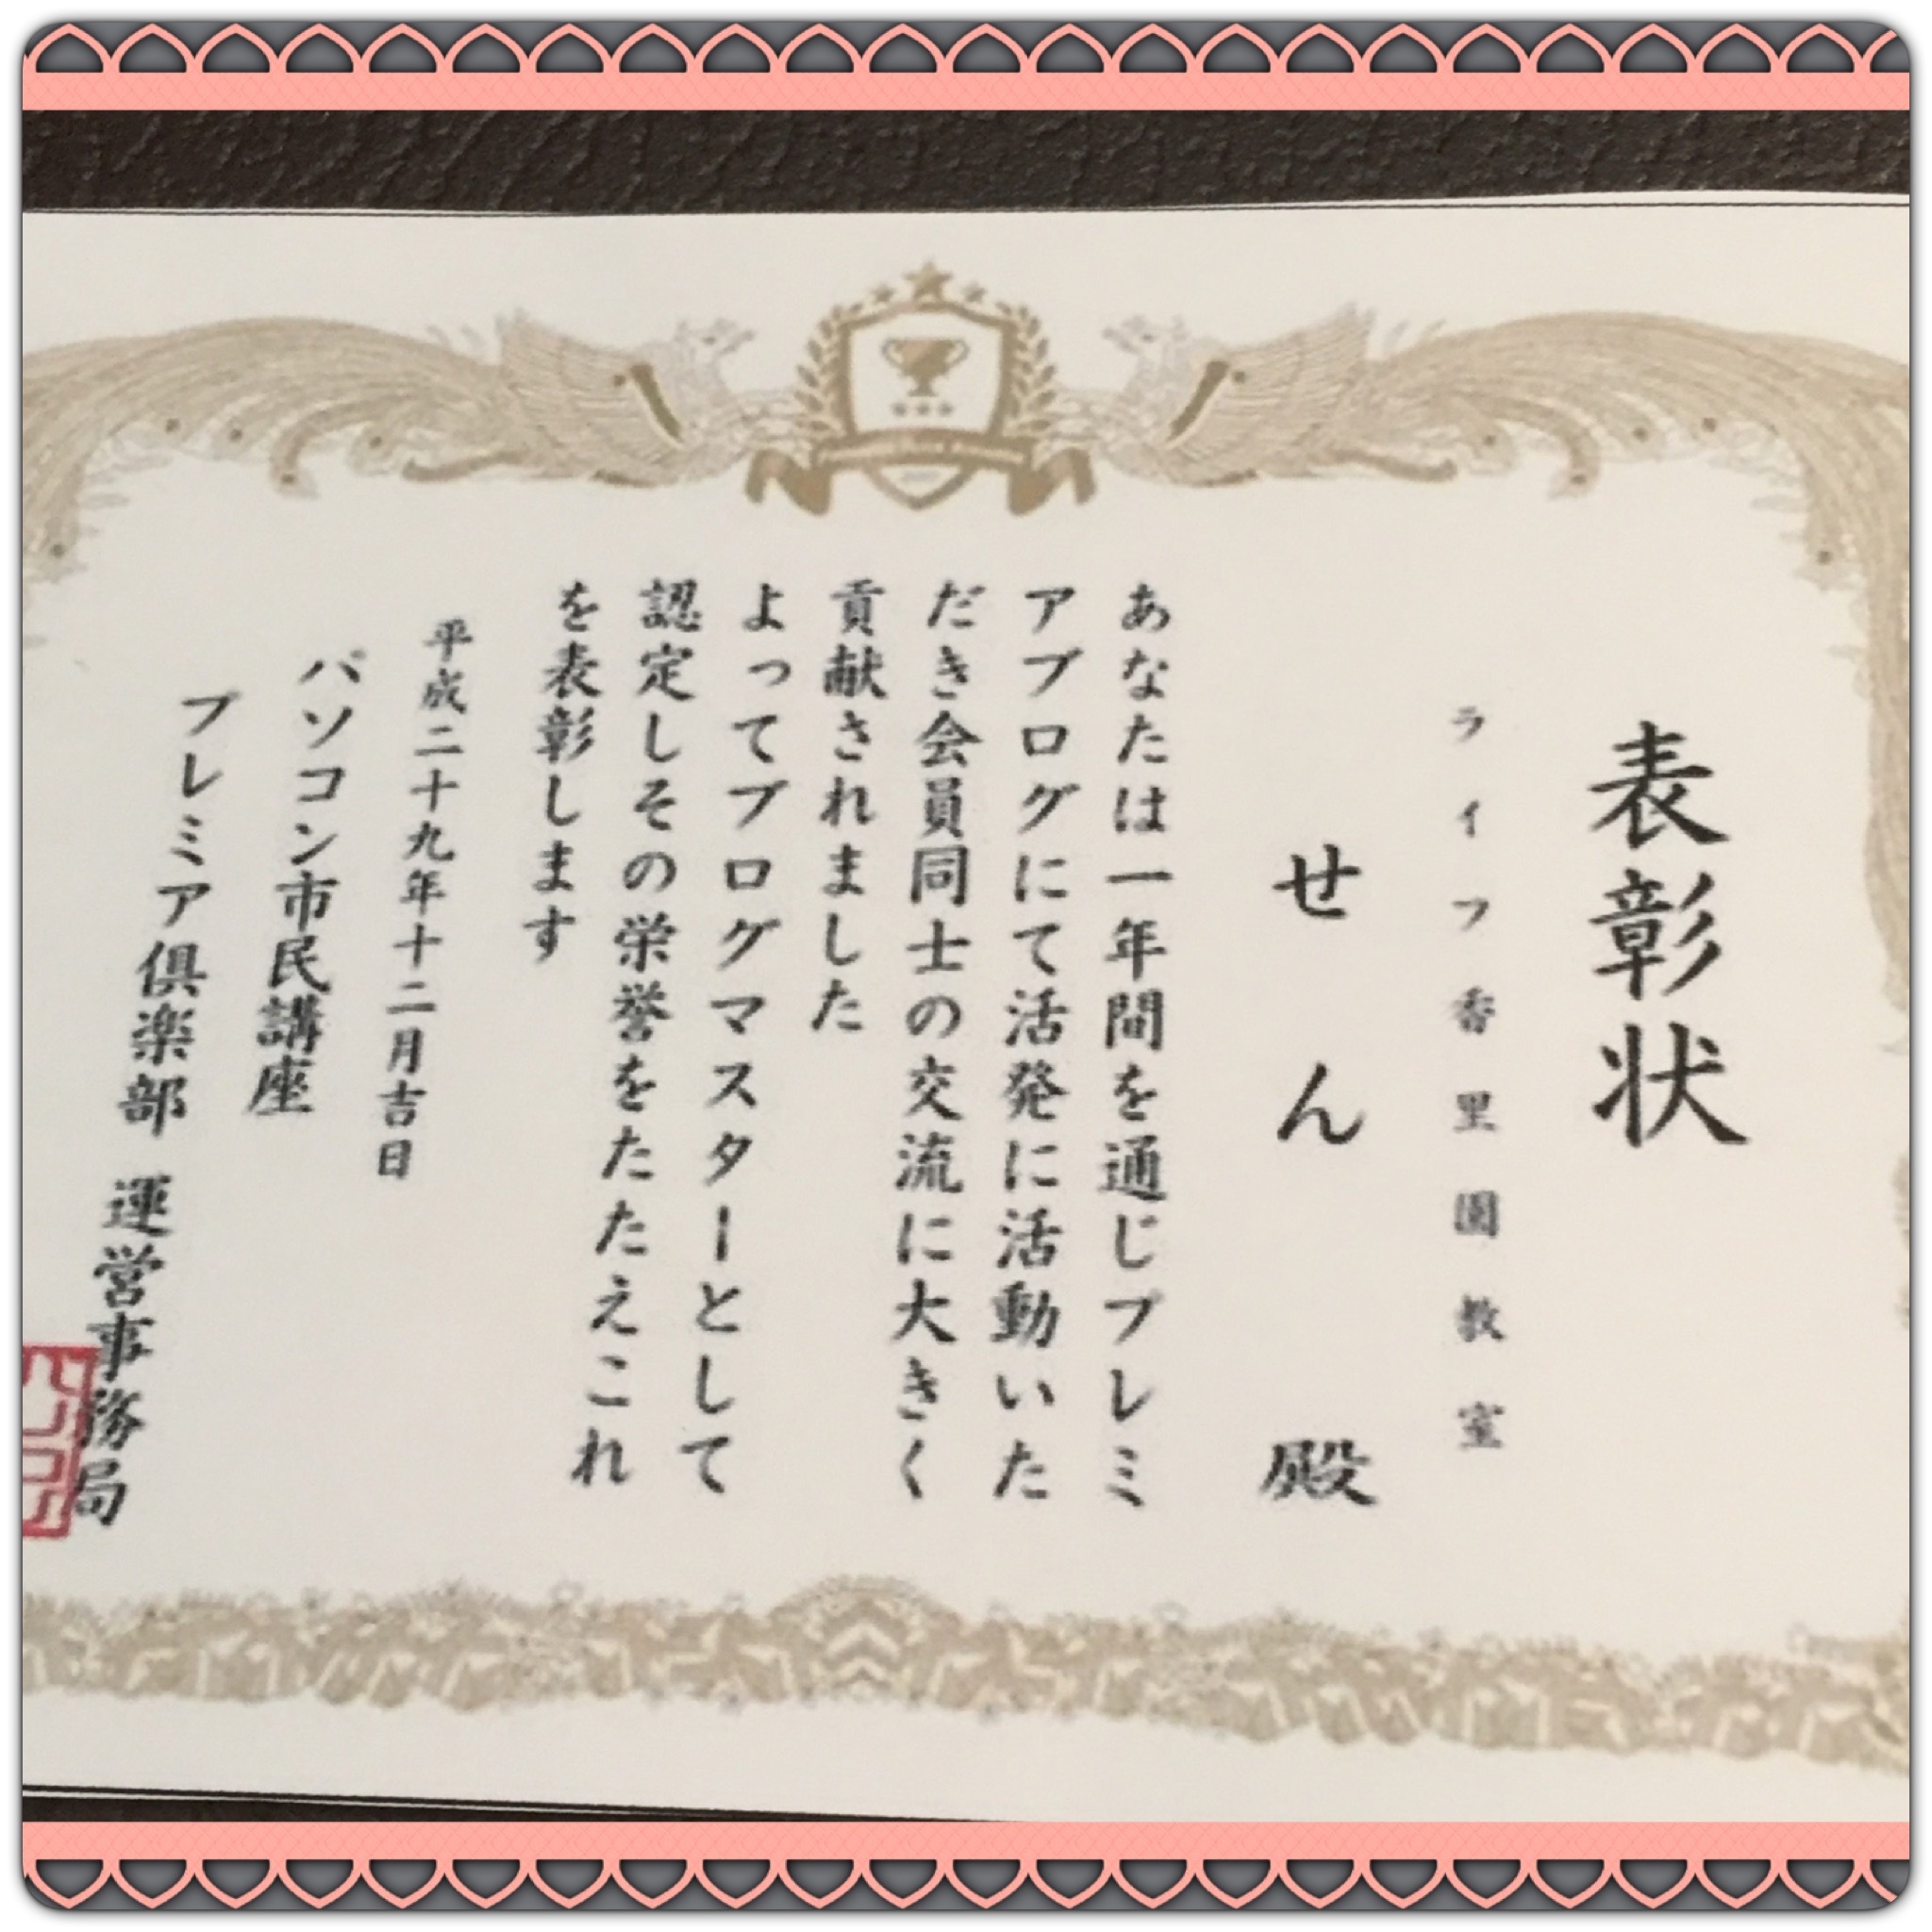 表彰状
ライフ香里園教室
せん 殿
あなたは一年間を通じプレミ
アブログにて活発に活動いた
だき会員同士の交流に大きく
貢献されました
よってブログマスターとして
認定しその栄誉をたたえこれ
を表彰します
平成二十九年十二月吉日
パソコン市民講座
プレミア倶楽部 運営事務局